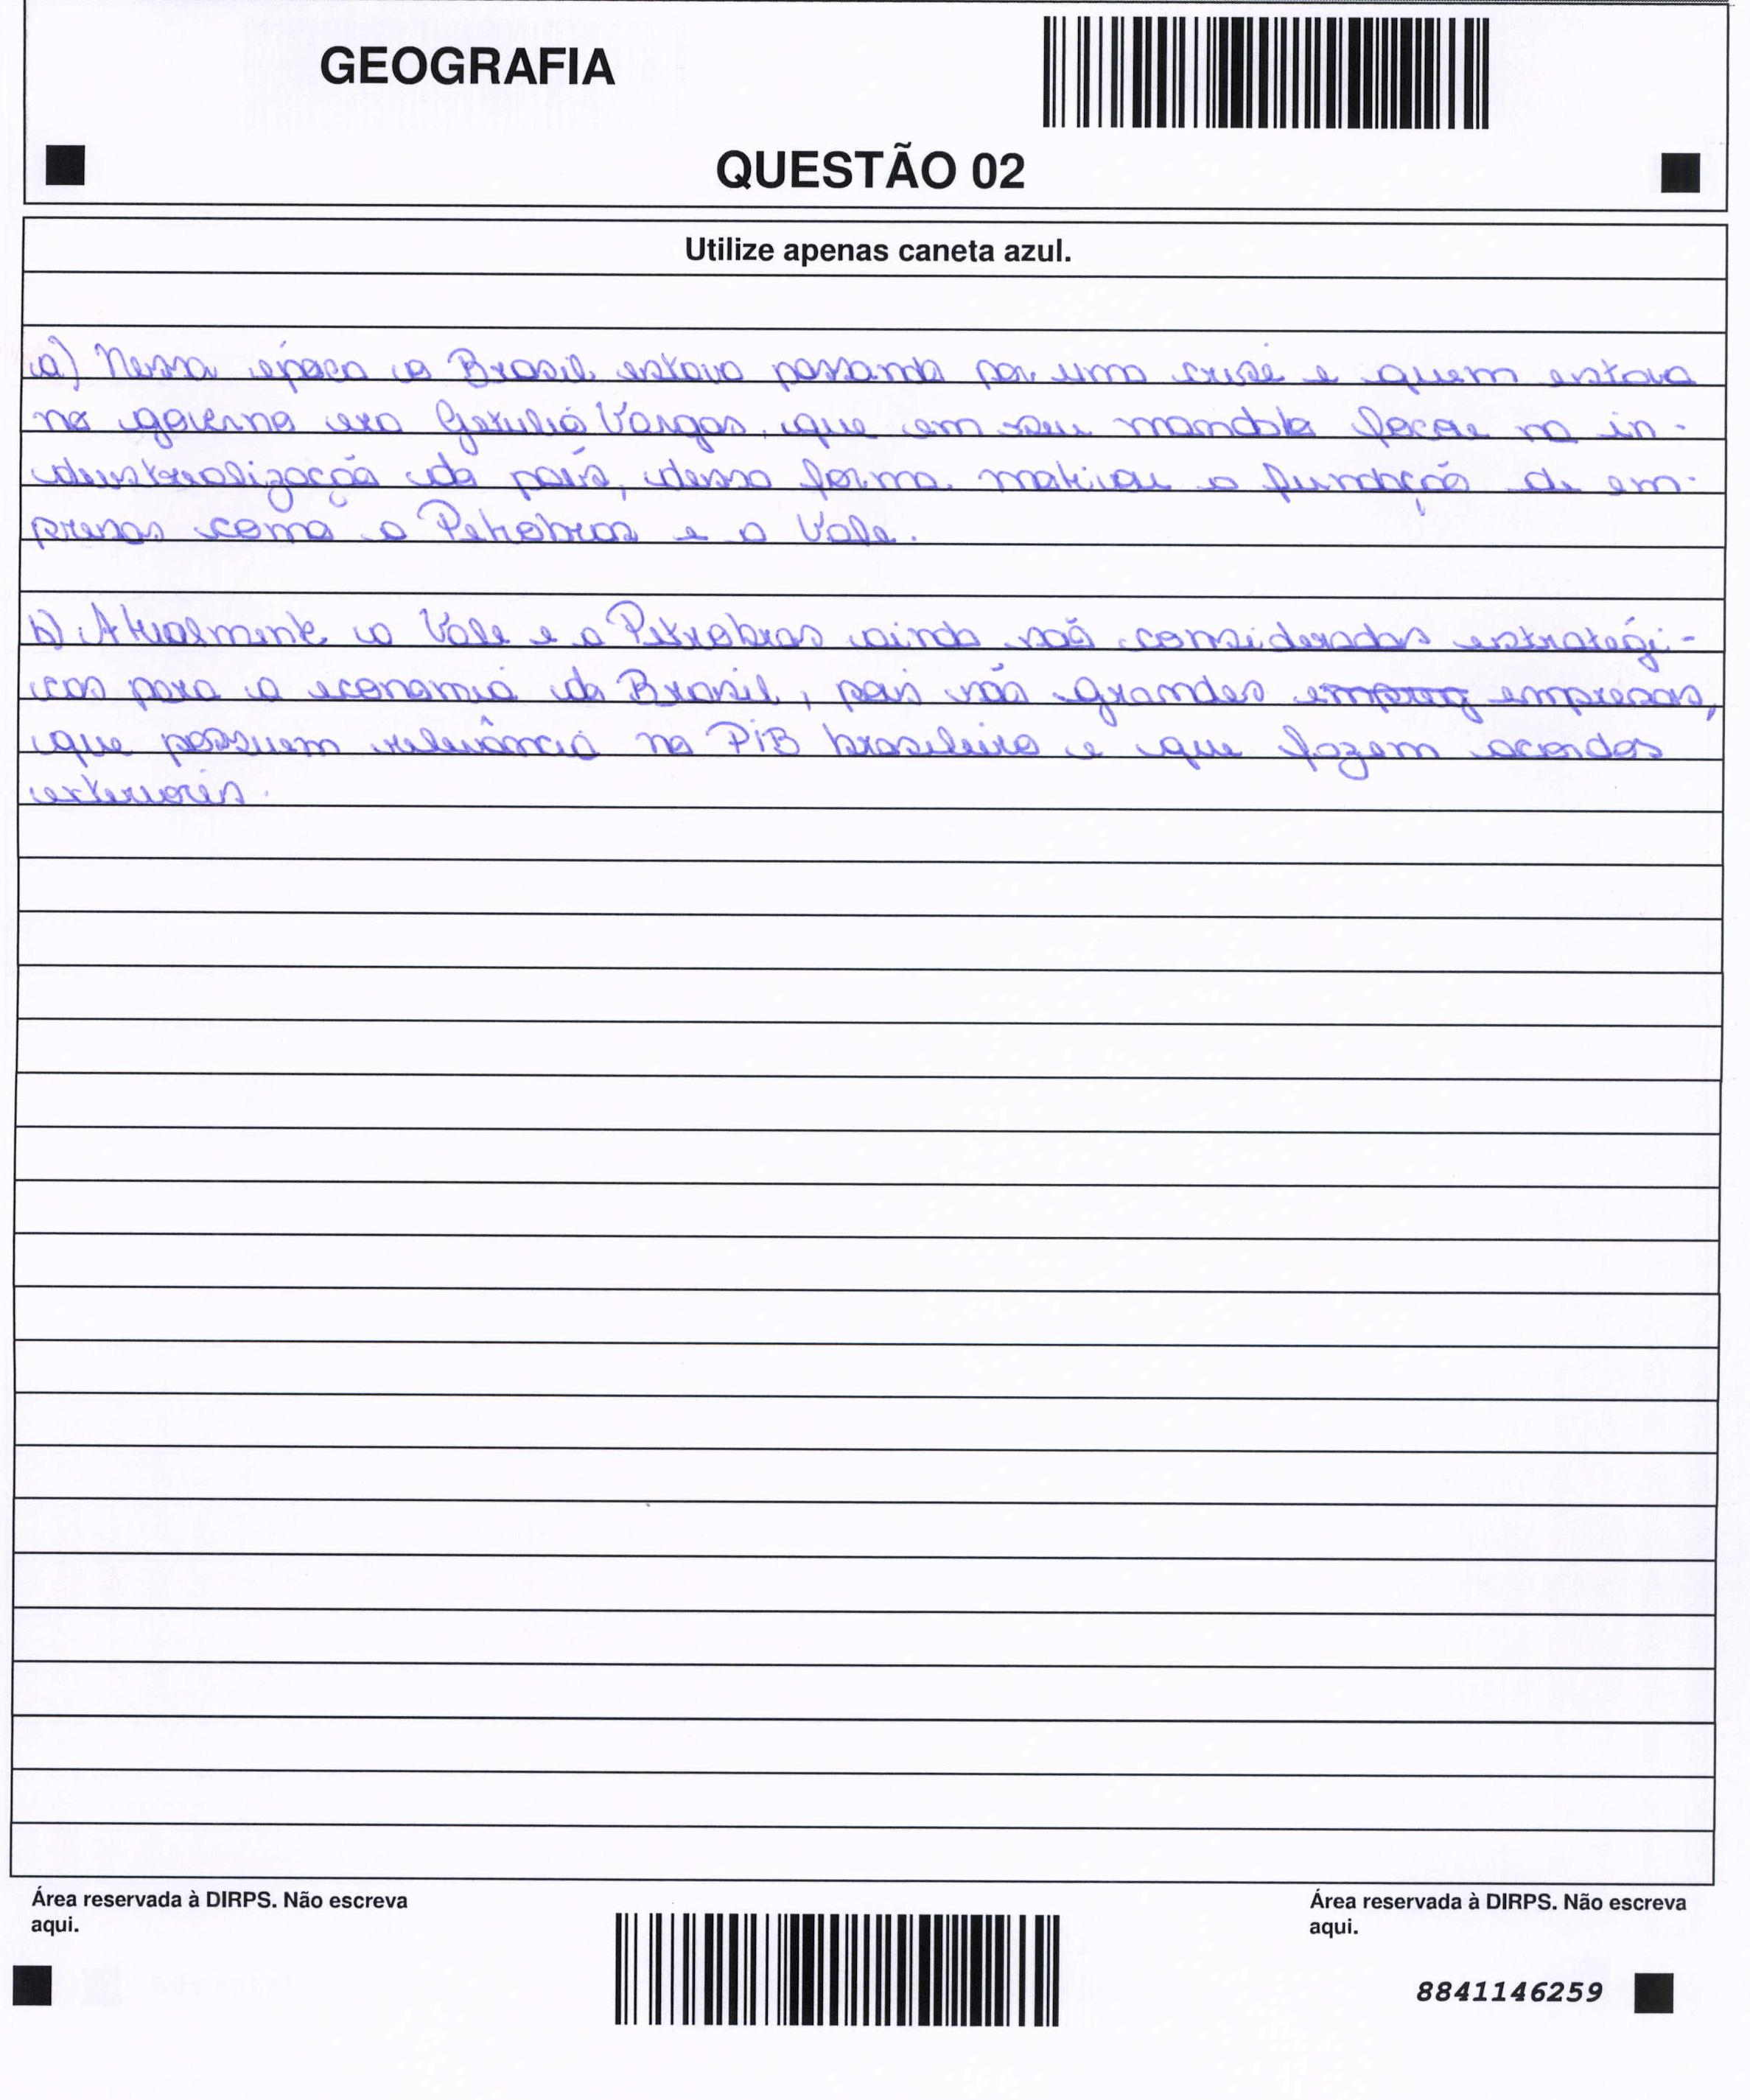 GEOGRAFIA
QUESTÃO 02
Utilize apenas caneta azul.
a) Nessa época o Brasil estava passando por uma crise e quem estava
no governo era Getulio Vargas, que em seu mandato focou na in-
dustrialização do país, dessa forma motivou a fundação de em-
presas como a Petrobras e a Vale.
b) Atualmente a Vale e a Petrobras ainda são consideradas estratégi-
cas para a economia do Brasil, pois são grandes empresas,
que possuem relevância no PIB brasileiro e que fazem acordos
exteriores.
Área reservada à DIRPS. Não escreva
aqui.
Área reservada à DIRPS. Não escreva
aqui.
8841146259